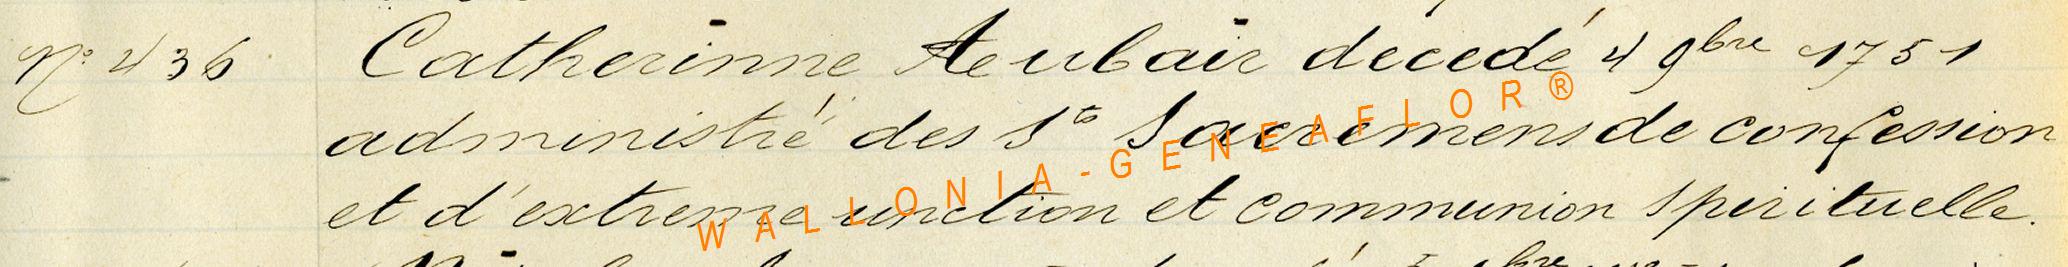 N° 436 Catherinne Aeubair decedé 4 9bre 1751
administré des Sts Sacremens de confession
et d'extreme unction et communion spirituelle.
WALLONIA-GENEAFLOR®